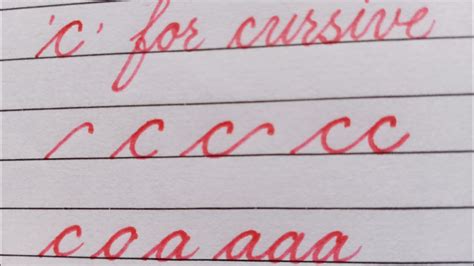 'c' for cursive
c c cc
c o a aaa